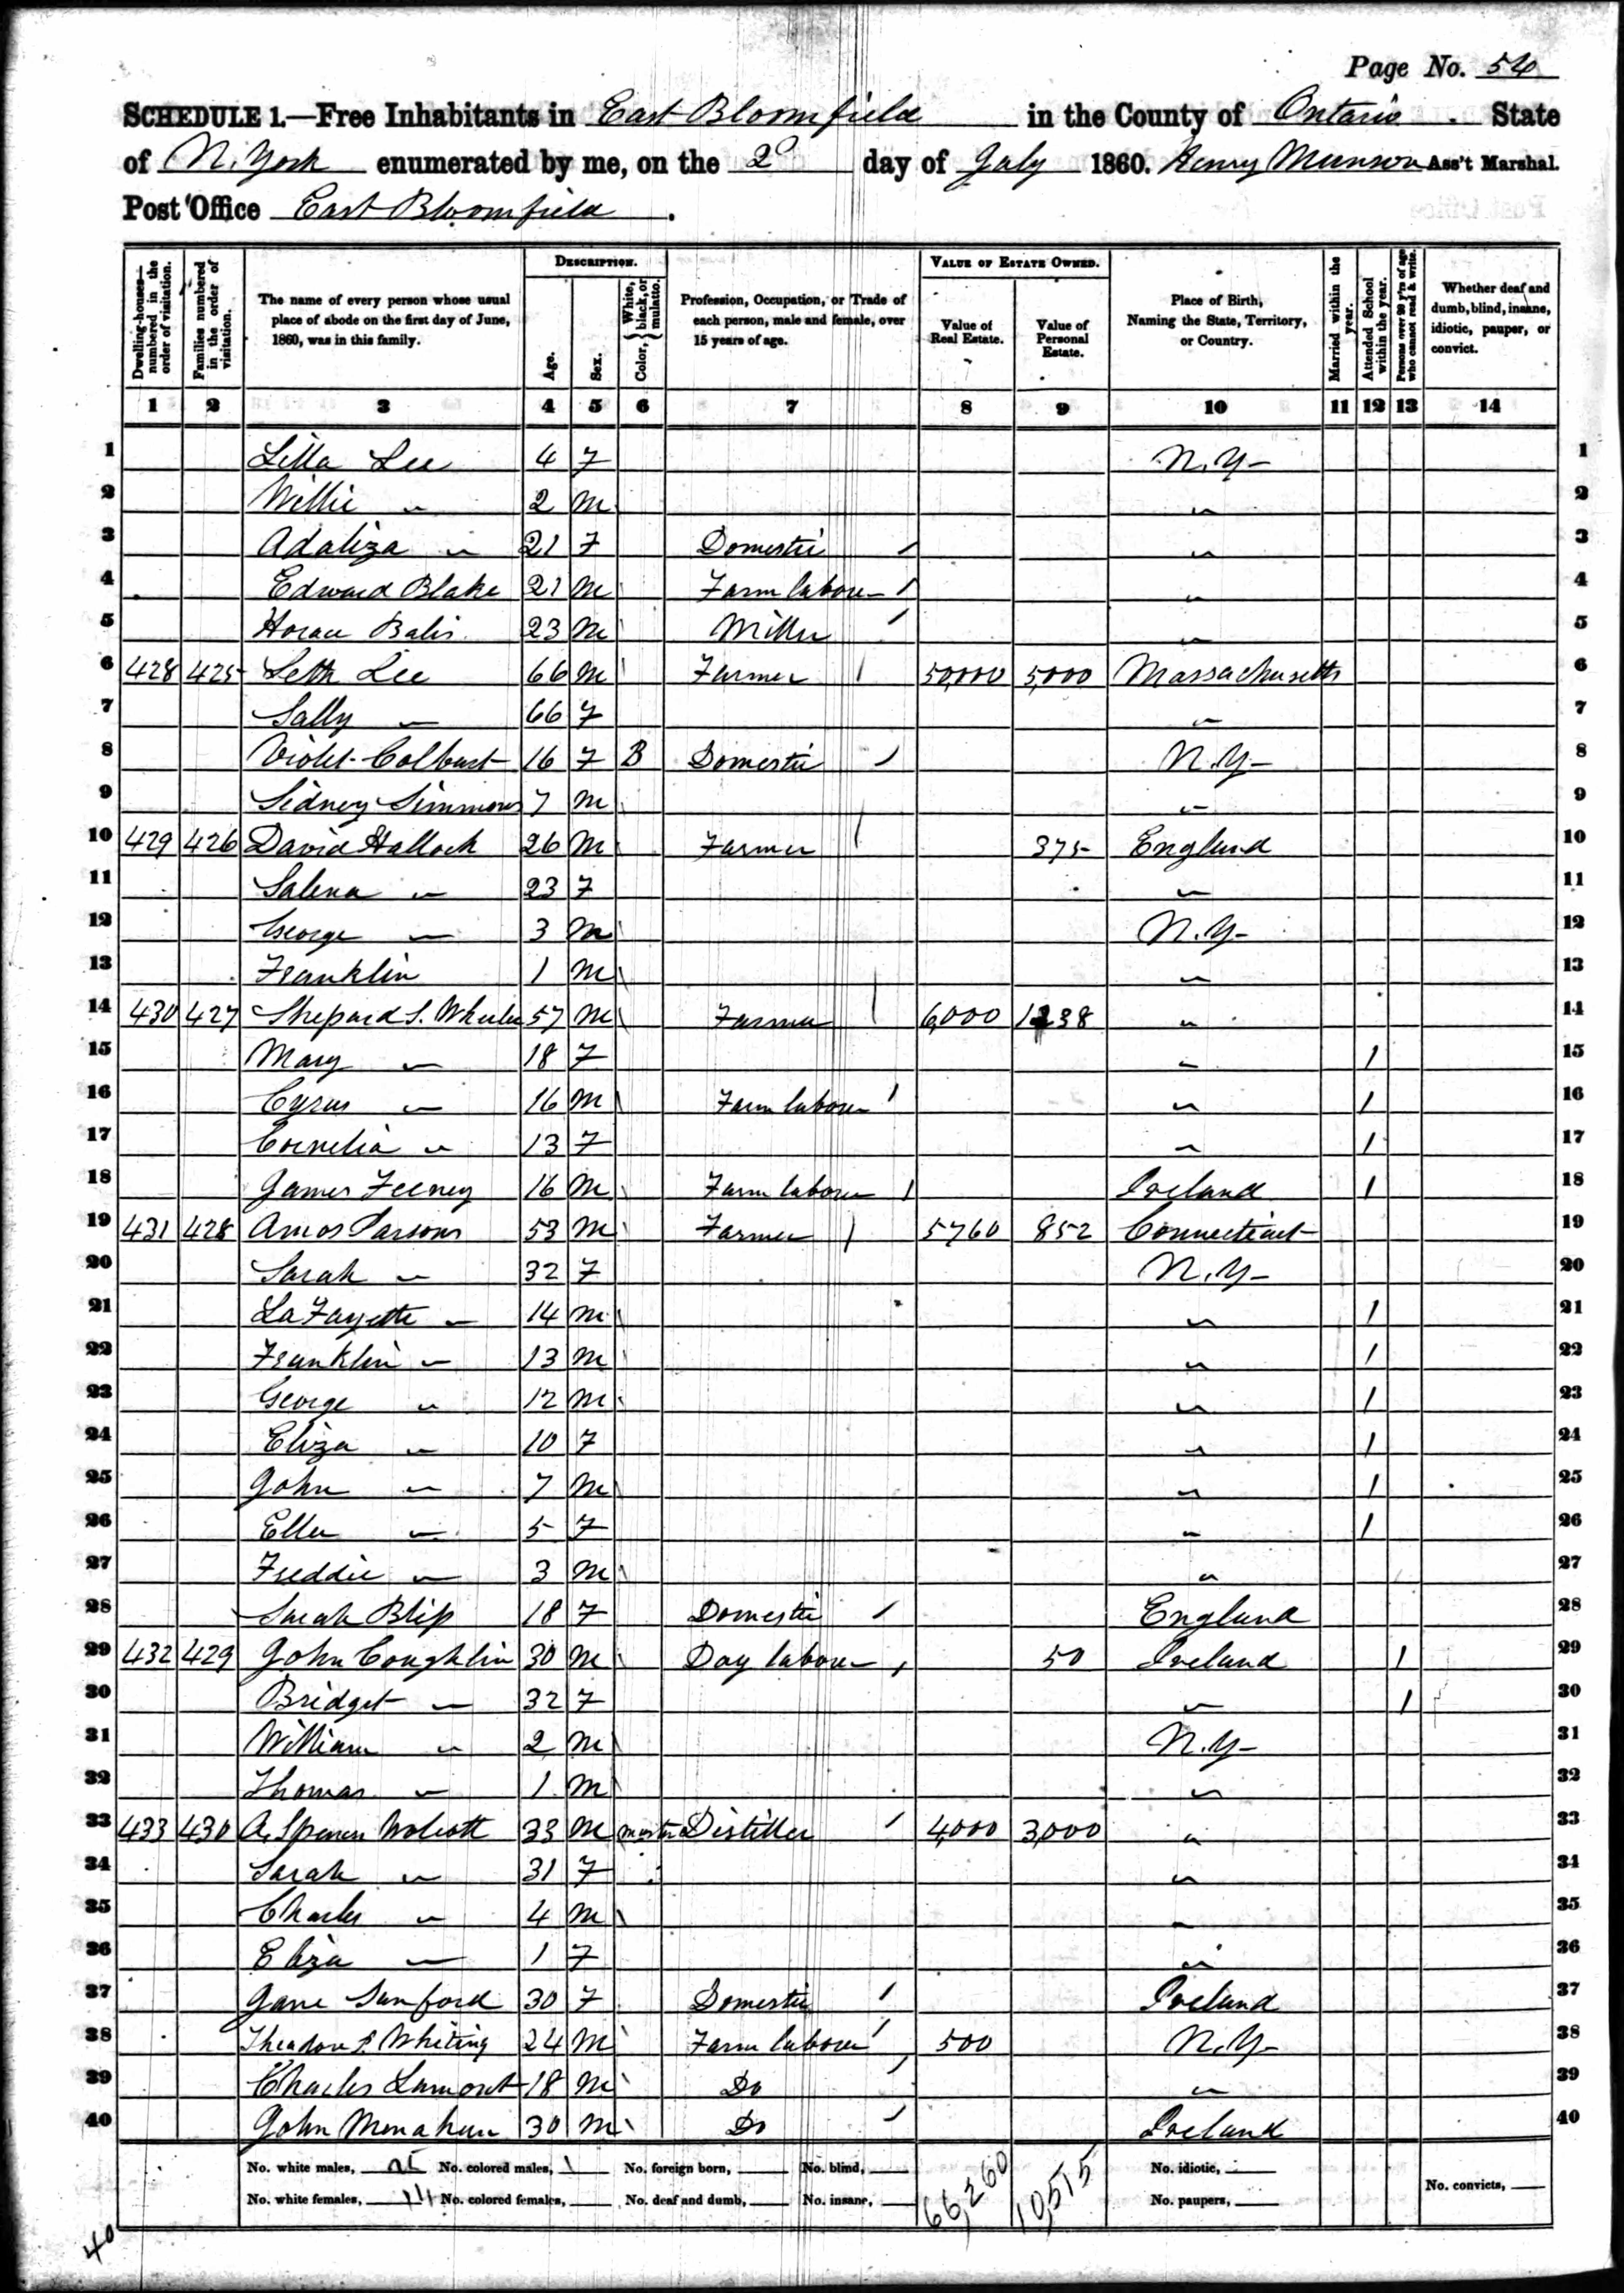 Page No. 54
SCHEDULE 1.—Free Inhabitants in East Bloomfield in the County of Ontario State
of N. York enumerated by me, on the 2d day of July 1860. Henry Munson Ass't Marshal.
Post Office East Bloomfield.
Dwelling-houses—numbered in the order of visitation.
Families numbered in the order of visitation.
The name of every person whose usual place of abode on the first day of June, 1860, was in this family.
DESCRIPTION.
Age.
Sex.
Color, { White, black, or mulatto.
Profession, Occupation, or Trade of each person, male and female, over 15 years of age.
VALUE OF ESTATE OWNED.
Value of Real Estate.
Value of Personal Estate.
Place of Birth, Naming the State, Territory, or Country.
Married within the year.
Attended School within the year.
Persons over 20 y'rs of age who cannot read & write.
Whether deaf and dumb, blind, insane, idiotic, pauper, or convict.
1 2 3 4 5 6 7 8 9 10 11 12 13 14
1 Lilla Lee 4 F N.Y- 1
2 Willie " 2 M " 2
3 Adaliza " 21 F Domestic / " 3
4 Edward Blake 21 M Farm laborer / " 4
5 Horace 23 M Miller / " 5
6 428 425 Seth Lee 66 M Farmer / 50,000 5,000 Massachusetts 6
7 Sally " 66 F " 7
8 Violet 16 F B Domestic / N.Y- 8
9 Sidney Simmons 7 M " 9
10 429 426 David Hallock 26 M Farmer / 375 England 10
11 Salena " 23 F " 11
12 George " 3 M N.Y- 12
13 Franklin 1 M " 13
14 430 427 Shepard S. Wheeler 57 M Farmer / 6,000 1238 " 14
15 Mary " 18 F " / 15
16 Cyrus " 16 M Farm laborer / " / 16
17 Cornelia " 13 F " / 17
18 James Feeney 16 M Farm laborer / Ireland / 18
19 431 428 Amos Parsons 53 M Farmer / 5760 852 Connecticut 19
20 Sarah " 32 F N.Y- 20
21 LaFayette " 14 M " / 21
22 Franklin " 13 M " / 22
23 George " 12 M " / 23
24 Eliza " 10 F " / 24
25 John " 7 M " / 25
26 Ella " 5 F " / 26
27 Freddie " 3 M " 27
28 Sarah 18 F Domestic / England 28
29 432 429 John Coughlin 30 M Day laborer / 50 Ireland / 29
30 Bridget " 32 F " / 30
31 William " 2 M N.Y- 31
32 Thomas " 1 M " 32
33 433 430 A. Spencer Wolcott 33 M master Distiller / 4,000 3,000 " 33
34 Sarah " 31 F " 34
35 Charles " 4 M " 35
36 Eliza " 1 F " 36
37 Jane Sanford 30 F Domestic / Ireland 37
38 Theadore Whiting 24 M Farm laborer / 500 N.Y- 38
39 Charles Lamont 18 M Do / " 39
40 John Monahan 30 M Do / Ireland 40
No. white males, No. colored males, No. foreign born, No. blind, 66,260 10,515 No. idiotic,
No. white females, No. colored females, No. deaf and dumb, No. insane, No. paupers, No. convicts,
40